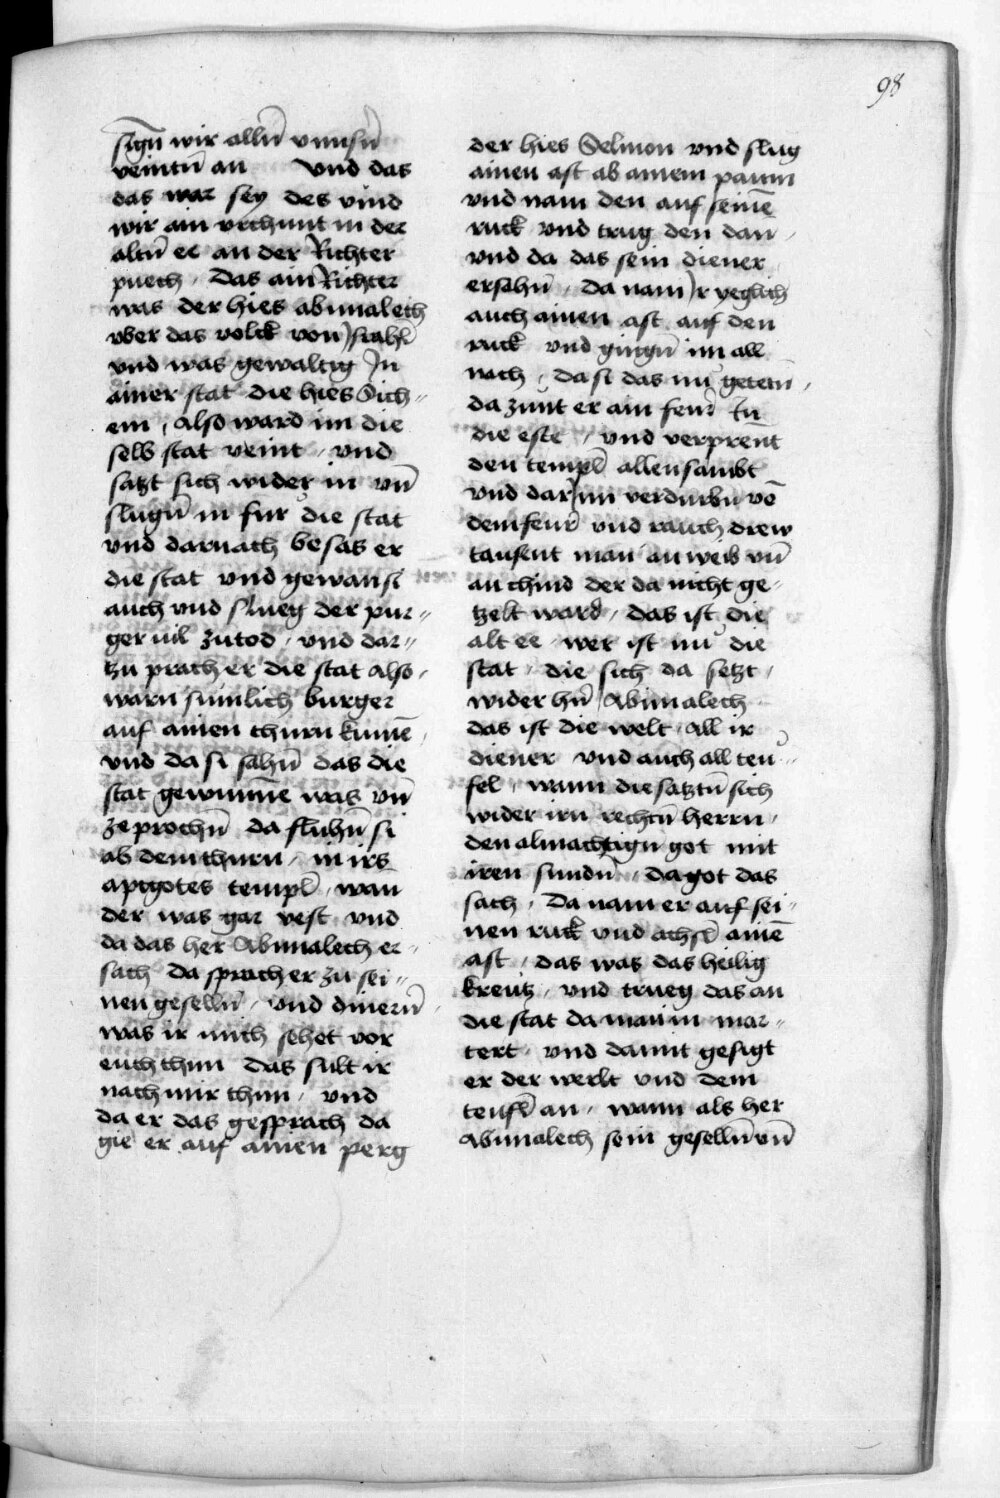 98
sign̄ wir alln̄ vnnsn̄
veintn̄ an Vnd das
das war sey des vind
wir ain vrchunt in der
altn̄ ee an der Richter
puech · Das ain Richter
was der hies abimalech
vber das volck von Israhel̄
vnd was gewaltig In
ainer stat die hies Sich-
em , also ward im die
selb stat veint · vnd
satzt sich wider in vn̄
slugn̄ in fur die stat
vnd darnach besas er
die stat vnd gewan si
auch vnd slueg der pur-
ger vil zutod · vnd dar-
tzu prach er die stat also ·
warn sumlich burger
auf ainen thurn kumē ,
vnd da si sahn̄ das die
stat gewunnē was vn̄
zeprochn̄ da fluhn̄ si
ab dem thurn · in irs
aptgotes templ̄ · wan̄
der was gar vest vnd
da das her Abimalech er-
sach da sprach er zu sei-
nen geselln̄ · vnd dinern̄
was ir mich sehet vor
euch thun das sult ir
nach mir thun · vnd
da er das gesprach da
gie er auf ainen perg
der hies Selmon vnd slug
ainen ast ab ainem paum
vnd nam den auf seinē
ruck vnd trug den dan̄ ,
vnd da das sein diener
ersahn̄ · da nam Ir yeglich
auch ainen ast auf den
ruck vnd gingn̄ im all
nach , da si das nu getetn̄ ,
da zunt er ain feur̄ In
die este , vnd verprent
den templ̄ allensambt
vnd dar Inn verdurbn̄ vō
dem feur̄ vnd rauch drew
tausent man an weib vn̄
an chind der da nicht ge-
tzelt ward · das ist die
alt ee · wer ist nu die
stat · die sich da setzt ,
wider hn̄ Abimalech
das ist die welt · all ir
diener vnd auch all teu-
fel , wann die satztn̄ sich
wider irn rechtn̄ herrn ,
den almachtign̄ got mit
iren sundn̄ · da got das
sach , Da nam er auf sei-
nen ruck vnd achsl̄ ainē
ast , das was das heilig
kreutz · vnd trueg das an
die stat da man in mar-
tert · vnd damit gesigt
er der werlt vnd dem
teufl̄ an · wann als her
Abimalech sein geselln̄ vn̄